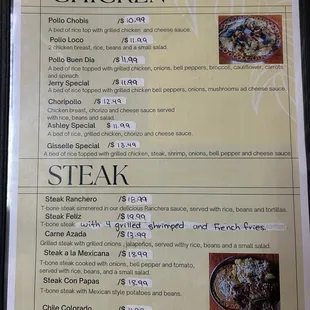 CHICKEN
Pollo Chobis /$ 10.99
A bed of rice top with grilled chicken and cheese sauce.
Pollo Loco /$ 11.99
2 chicken breast, rice, beans and a small salad.
Pollo Buen Dia /$ 11.99
A bed of rice topped with grilled chicken, onions, bell peppers, broccoli, cauliflower, carrots
and spinach
Jerry Special /$ 11.99
A bed of rice topped with grilled chicken, bell peppers, onions, mushrooms ad cheese sauce
Choripollo /$ 12.49
Chicken breast, chorizo and cheese sauce served
with rice, beans and salad.
Ashley Special $ 11.99
A bed of rice, grilled chicken, chorizo and cheese sauce.
Gisselle Special /$ 13.49
A bed of rice topped with grilled chicken, steak, shrimp, onions, bell pepper and cheese sauce
STEAK
Steak Ranchero /$ 18.99
T-bone steak simmered in our delicious Ranchera sauce, served with rice, beans and tortillas.
Steak Feliz /$ 19.99
T-bone steak with 4 grilled shrimped and French fries
Carne Azada /$ 13.99
Grilled steak with grilled onions, jalapeños, served with rice, beans and a small salad.
Steak a la Mexicana /$ 18.99
T-bone steak cooked with onions, bell pepper and tomato,
served with rice, beans, and a small salad.
Steak Con Papas /$ 18.99
T-bone steak with Mexican style potatoes and beans.
Chile Colorado